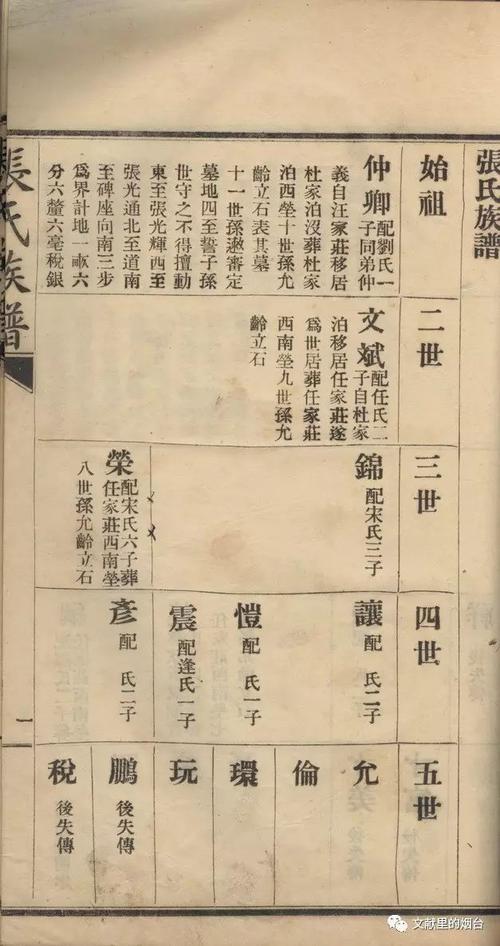 張氏族譜
始祖
仲卿
配劉氏一
子同弟仲
義自汪家莊移居
杜家泊沒葬杜家
泊西塋十世孫允
齡立石表其墓
十一世孫邀審定
墓地四至誓子孫
世守之不得擅動
東至張光輝西至
張光通北至道南
至碑座向南三步
爲界計地一畝六
分六釐六毫稅銀
二世
文斌
配任氏二
子自杜家
泊移居任家莊遂
爲世居葬任家莊
西南塋九世孫允
齡立石
三世
錦
配宋氏三子
榮
配宋氏六子葬
任家莊西南塋
八世孫允齡立石
四世
讓
配 氏二子
愷
配 氏一子
震
配逄氏一子
彥
配 氏二子
五世
允
倫
環
玩
鵬
後失傳
稅
後失傳
張氏族譜
一
文献里的烟台